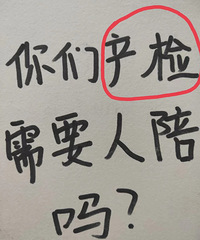 你们产检
需要人陪
吗?